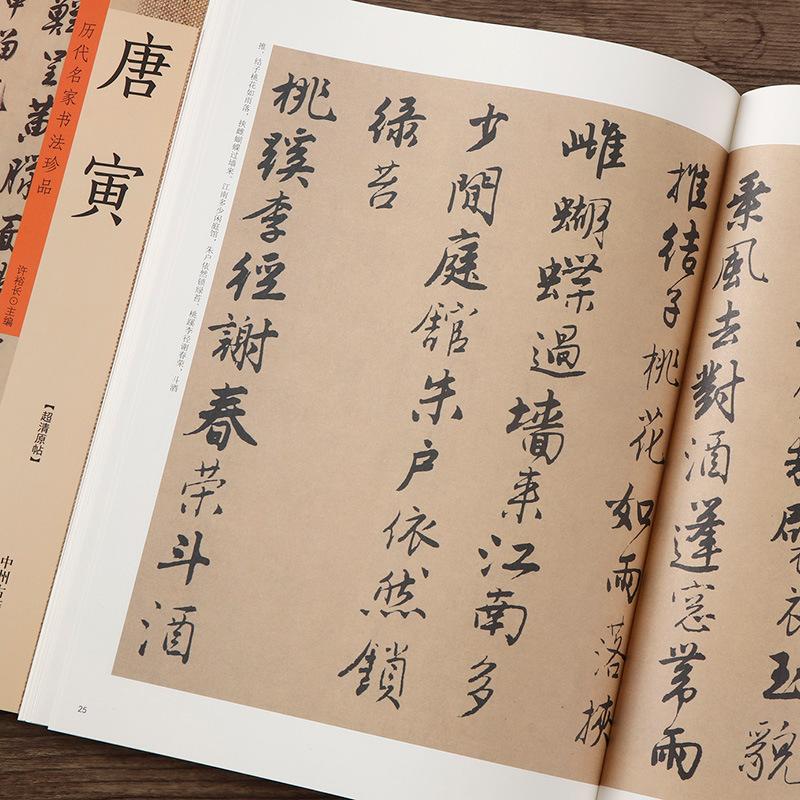 历代名家书法珍品
唐寅
许裕长⊙主编
【超清原帖】
中州古
推，结子桃花如雨落，挟雌蝴蝶过墙来。江南多少闲庭馆，朱户依然锁绿苔。桃蹊李径谢春荣，斗酒
乘風去對酒蓬窓帶雨
推結子桃花如雨落挾
雌蝴蝶過墻来江南多
少閒庭舘朱户依然鎖
緑苔
桃蹊李徑謝春荣斗酒
25